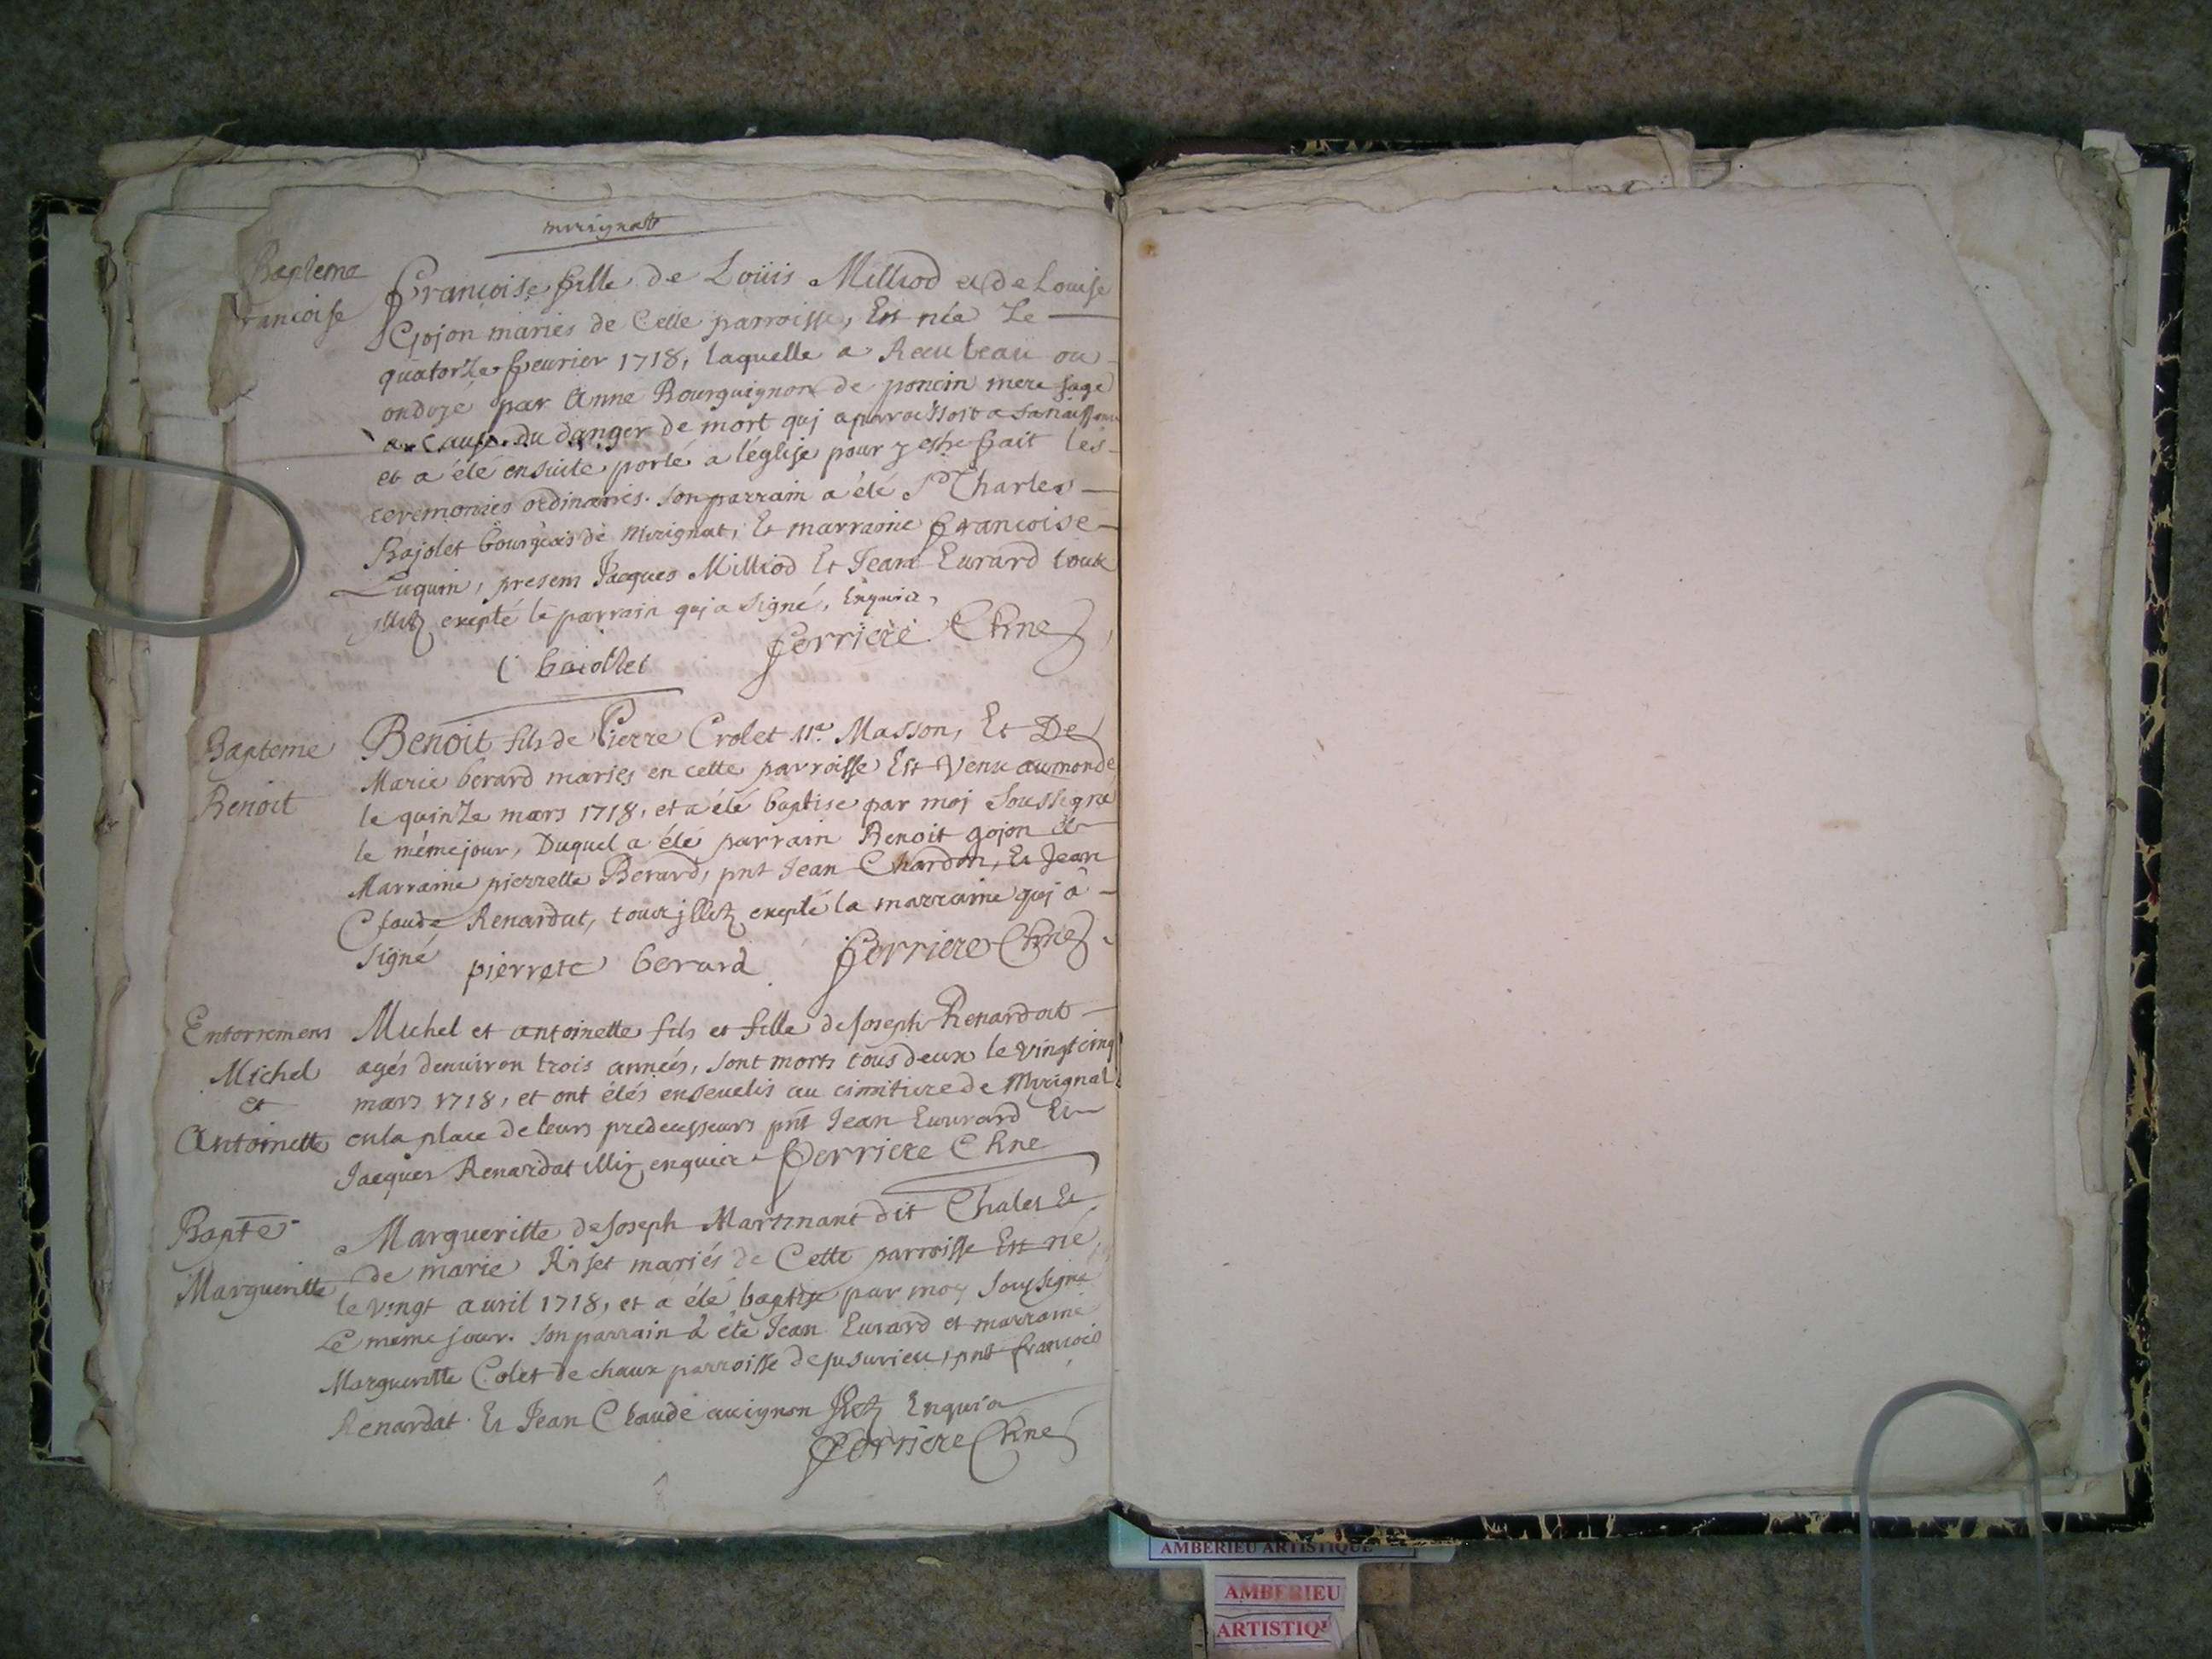 mirignat
Bapteme
francoise
Francoise fille de Loüis Milliod et de Louise
Gojon mariés de Cette parroisse, Est née Le
quatorze feurier 1718, laquelle a Receu leau ou
ondoyé par Anne Bourguignon de poncin mere sage
a Cause du danger de mort qui aparoissoit a sa naissance
et a été ensuite porté a léglise pour y estre fait les
ceremonies ordinaires. son parrain a été Sr Charles
Bajolet bourgeois de Mirignat, Et marraine francoise
Luquin, presens Jacques Milliod Et Jean Eurard touts
illitz excepté le parrain qui a signé, Enquis,
C baiollet ferriere Chne
Bapteme
Benoit
Benoit fils de Pierre Crolet Me Masson, Et De
Marie berard mariés en cette parroisse Est Venu au monde
le quinze mars 1718, et a été baptise par moj Soussigné
le même jour, Duquel a été parrain Benoit gojon et
Marraine pierrette Berard, pnt Jean Chardon, Et Jean
Claude Renardat, touts jllitz exepté la marraine quj a
signé pierrete berard ferriere Chne
Enterremens
Michel
et
Antoinette
Michel et antoinette fils et fille de Joseph Renardat
agés denuiron trois années, sont morts tous deux le vingt cinq
mars 1718, et ont étés enseuelis au cimitiere de Myrignat
en la place de leurs predecesseurs pnt Jean Euurard Et
Jacques Renardat illitz enquis ferriere Chne
Bapte
Margueritte
Margueritte de Joseph Martinant dit Chalet Et
de marie Riset mariés de Cette parroisse Est né
le vingt auril 1718, et a été baptise par moy Soussigné
Le meme jour. son parrain a été Jean Eurard et marraine
Margueritte Colet de chaux parroisse de jusurieu, pnt francois
Renardat Et Jean Claude auignon Jllitz Enquis
ferriere Chne
AMBERIEU ARTISTIQUE
AMBERIEU
ARTISTIQU